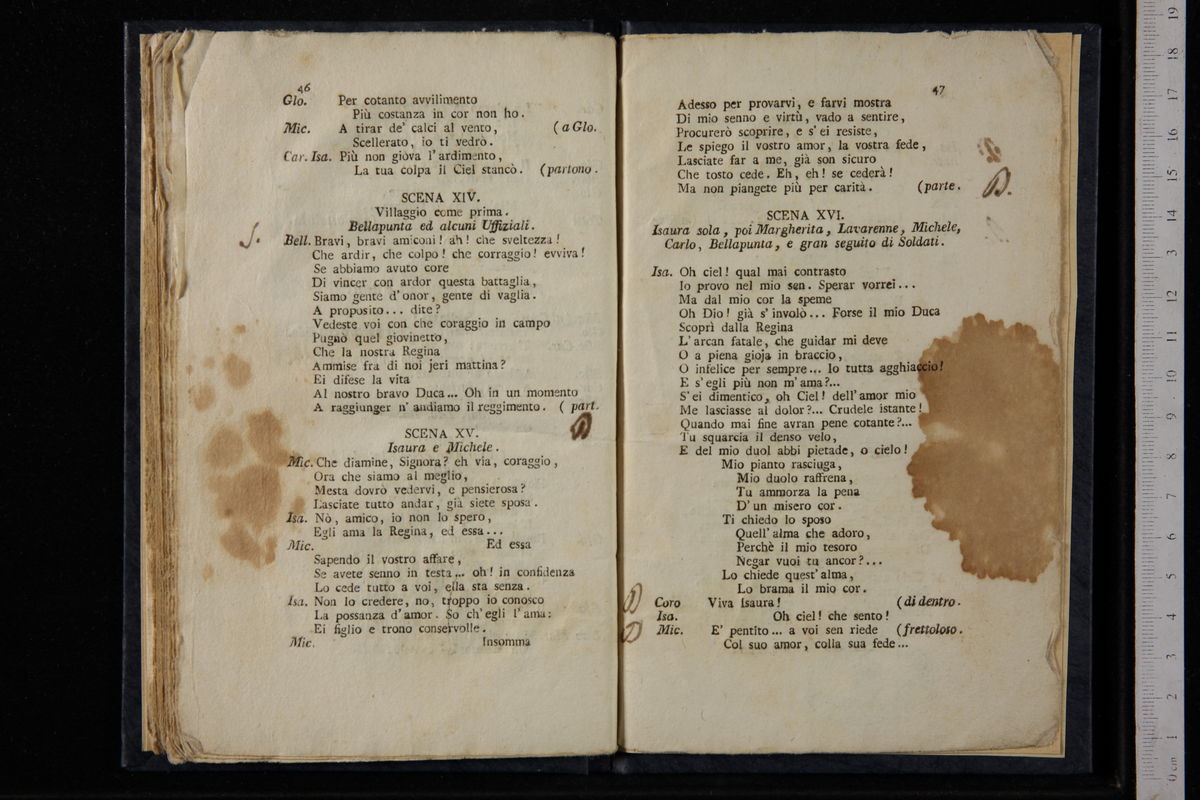 46
Glo. Per cotanto avvilimento
Più costanza in cor non ho.
Mic. A tirar de' calci al vento, (a Glo.
Scellerato, io ti vedrò.
Car. Isa. Più non giova l'ardimento,
La tua colpa il Ciel stancò. (partono.
SCENA XIV.
Villaggio come prima.
Bellapunta ed alcuni Uffiziali.
Bell. Bravi, bravi amiconi! ah! che sveltezza!
Che ardir, che colpo! che corraggio! evviva!
Se abbiamo avuto core
Di vincer con ardor questa battaglia,
Siamo gente d'onor, gente di vaglia.
A proposito... dite?
Vedeste voi con che coraggio in campo
Pugnò quel giovinetto,
Che la nostra Regina
Ammise fra di noi jeri mattina?
Ei difese la vita
Al nostro bravo Duca... Oh in un momento
A raggiunger n'andiamo il reggimento. (part.
SCENA XV.
Isaura e Michele.
Mic. Che diamine, Signora? eh via, coraggio,
Ora che siamo al meglio,
Mesta dovrò vedervi, e pensierosa?
Lasciate tutto andar, già siete sposa.
Isa. Nò, amico, io non lo spero,
Egli ama la Regina, ed essa...
Mic. Ed essa
Sapendo il vostro affare,
Se avete senno in testa... oh! in confidenza
Lo cede tutto a voi, ella sta senza.
Isa. Non lo credere, no, troppo io conosco
La possanza d'amor. So ch'egli l'ama:
Ei figlio e trono conservolle.
Mic. Insomma
47
Adesso per provarvi, e farvi mostra
Di mio senno e virtù, vado a sentire,
Procurerò scoprire, e s'ei resiste,
Le spiego il vostro amor, la vostra fede,
Lasciate far a me, già son sicuro
Che tosto cede. Eh, eh! se cederà!
Ma non piangete più per carità. (parte.
SCENA XVI.
Isaura sola, poi Margherita, Lavarenne, Michele,
Carlo, Bellapunta, e gran seguito di Soldati.
Isa. Oh ciel! qual mai contrasto
Io provo nel mio sen. Sperar vorrei...
Ma dal mio cor la speme
Oh Dio! già s'involò... Forse il mio Duca
Scoprì dalla Regina
L'arcan fatale, che guidar mi deve
O a piena gioja in braccio,
O infelice per sempre... Io tutta agghiaccio!
E s'egli più non m'ama?...
S'ei dimentico, oh Ciel! dell'amor mio
Me lasciasse al dolor?... Crudele istante!
Quando mai fine avran pene cotante?...
Tu squarcia il denso velo,
E del mio duol abbi pietade, o cielo!
Mio pianto rasciuga,
Mio duolo raffrena,
Tu ammorza la pena
D'un misero cor.
Ti chiedo lo sposo
Quell'alma che adoro,
Perchè il mio tesoro
Negar vuoi tu ancor?...
Lo chiede quest'alma,
Lo brama il mio cor.
Coro Viva Isaura! (di dentro.
Isa. Oh ciel! che sento!
Mic. E' pentito... a voi sen riede (frettoloso.
Col suo amor, colla sua fede...
0 cm 1 2 3 4 5 6 7 8 9 10 11 12 13 14 15 16 17 18 19